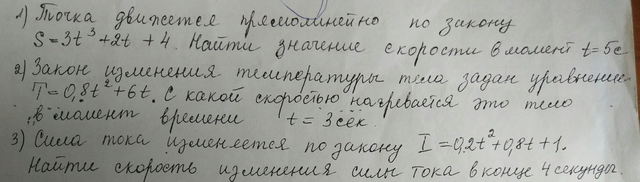 1) Точка движется прямолинейно по закону
S=3t³+2t+4. Найти значение скорости в момент t=5c
2) Закон изменения температуры тела задан уравнение
T=0,8t²+6t. С какой скоростью нагревается это тело
в момент времени t=3сек.
3) Сила тока изменяется по закону I=0,2t²+0,8t+1.
Найти скорость изменения силы тока в конце 4 секунды.